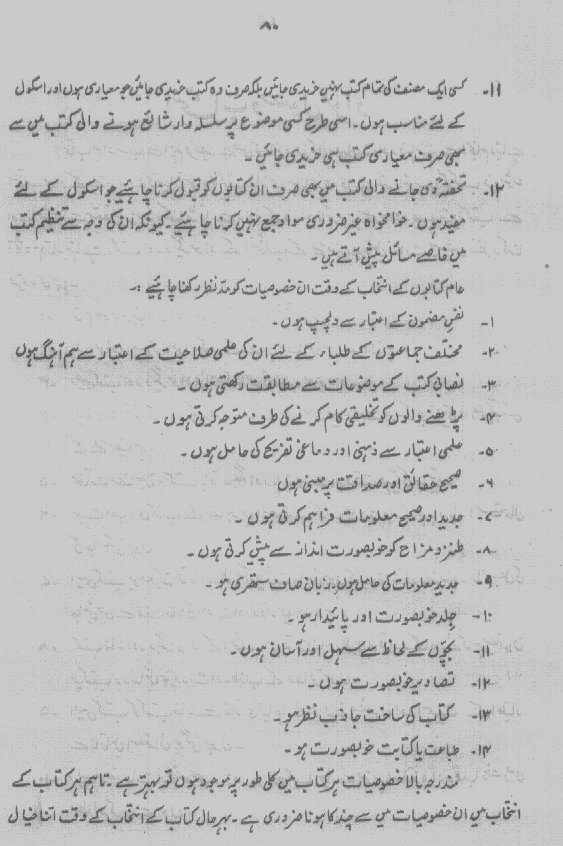 ۸۰
۱۱- کسی ایک مصنف کی تمام کتب نہیں خریدی جائیں بلکہ صرف وہ کتب خریدی جائیں جو معیاری ہوں اور اسکول
کے لئے مناسب ہوں۔ اسی طرح کسی موضوع پر سلسلہ وار شائع ہونے والی کتب میں سے
بھی صرف معیاری کتب ہی خریدی جائیں۔
۱۲- تحفتہً دی جانے والی کتب میں بھی صرف ان کتابوں کو قبول کرنا چاہئیے جو اسکول کے لئے
مفید ہوں۔ خوامخواہ غیر ضروری مواد جمع نہیں کرنا چاہئیے۔ کیونکہ ان کی وجہ سے تنظیم کتب
میں خاصے مسائل پیش آتے ہیں۔
عام کتابوں کے انتخاب کے وقت ان خصوصیات کو مدّنظر رکھنا چاہئیے :-
۱- نفسِ مضمون کے اعتبار سے دلچسپ ہوں۔
۲- مختلف جماعتوں کے طلباء کے لئے ان کی علمی صلاحیت کے اعتبار سے ہم آہنگ ہوں
۳- نصابی کتب کے موضوعات سے مطابقت رکھتی ہوں۔
۴- پڑھنے والوں کو تخلیقی کام کرنے کی طرف متوجہ کرتی ہوں۔
۵- علمی اعتبار سے ذہنی اور دماغی تفریح کی حامل ہوں۔
۶- صحیح حقائق اور صداقت پر مبنی ہوں
۷- جدید اور صحیح معلومات فراہم کرتی ہوں۔
۸- طنز و مزاح کو خوبصورت انداز سے پیش کرتی ہوں۔
۹- جدید معلومات کی حامل ہوں۔ زبان صاف ستھری ہو۔
۱۰- جِلد خوبصورت اور پائیدار ہو۔
۱۱- بچّوں کے لحاظ سے سہل اور آسان ہوں۔
۱۲- تصاویر خوبصورت ہوں۔
۱۳- کتاب کی ساخت جاذب نظر ہو۔
۱۴- طباعت یا کتابت خوبصورت ہو۔
مندرجہ بالا خصوصیات ہر کتاب میں کلی طور پر موجود ہوں تو بہتر ہے۔ تاہم ہر کتاب کے
انتخاب میں ان خصوصیات میں سے چند کا ہونا ضروری ہے۔ بہرحال کتاب کے انتخاب کے وقت اتنا خیال